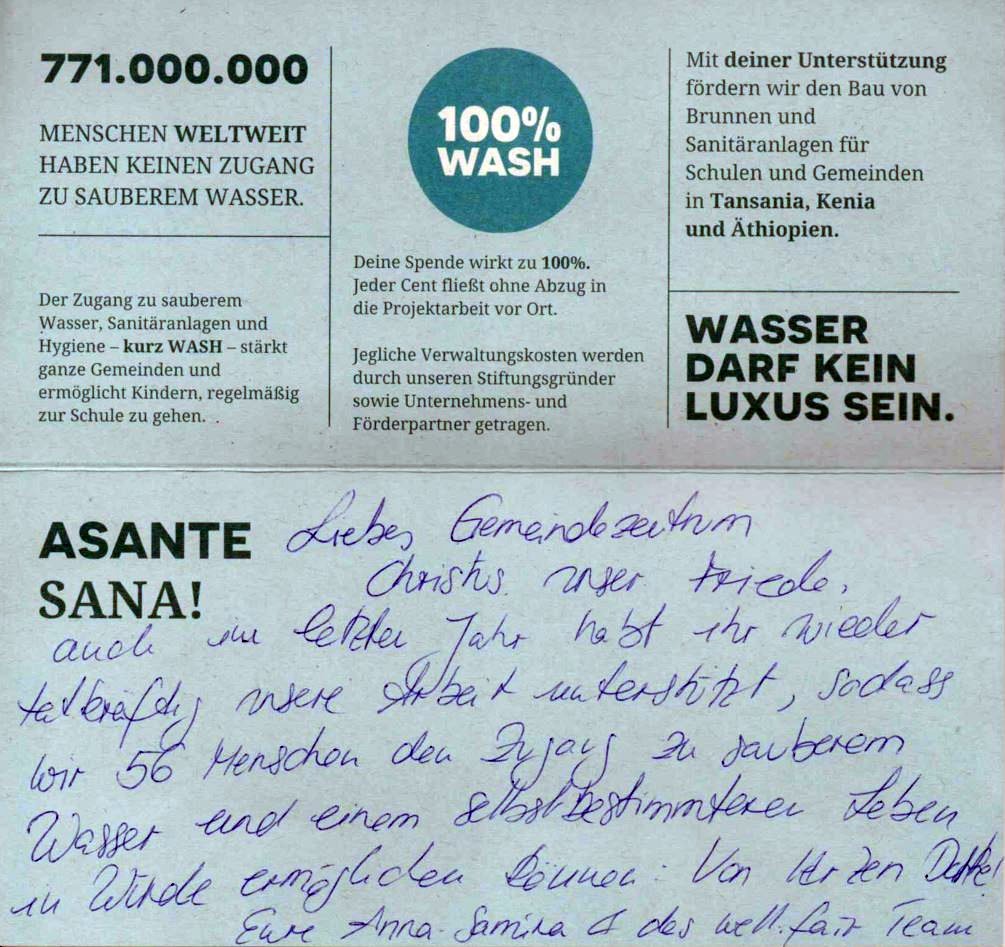 771.000.000
MENSCHEN WELTWEIT
HABEN KEINEN ZUGANG
ZU SAUBEREM WASSER.
Der Zugang zu sauberem
Wasser, Sanitäranlagen und
Hygiene – kurz WASH – stärkt
ganze Gemeinden und
ermöglicht Kindern, regelmäßig
zur Schule zu gehen.
100%
WASH
Deine Spende wirkt zu 100%.
Jeder Cent fließt ohne Abzug in
die Projektarbeit vor Ort.
Jegliche Verwaltungskosten werden
durch unseren Stiftungsgründer
sowie Unternehmens- und
Förderpartner getragen.
Mit deiner Unterstützung
fördern wir den Bau von
Brunnen und
Sanitäranlagen für
Schulen und Gemeinden
in Tansania, Kenia
und Äthiopien.
WASSER
DARF KEIN
LUXUS SEIN.
ASANTE
SANA!
Liebes Gemeindezentrum
Christus unser Friede,
auch im letzten Jahr habt ihr wieder
tatkräftig unsere Arbeit unterstützt, sodass
wir 56 Menschen den Zugang zu sauberem
Wasser und einem selbstbestimmteren Leben
in Würde ermöglichen können. Von Herzen Danke!
Eure Anna-Samira & das well:fair Team